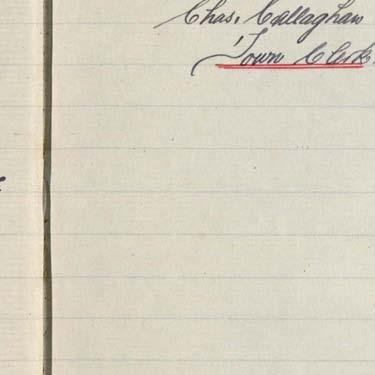 Chas. Callaghan
Town Clerk.